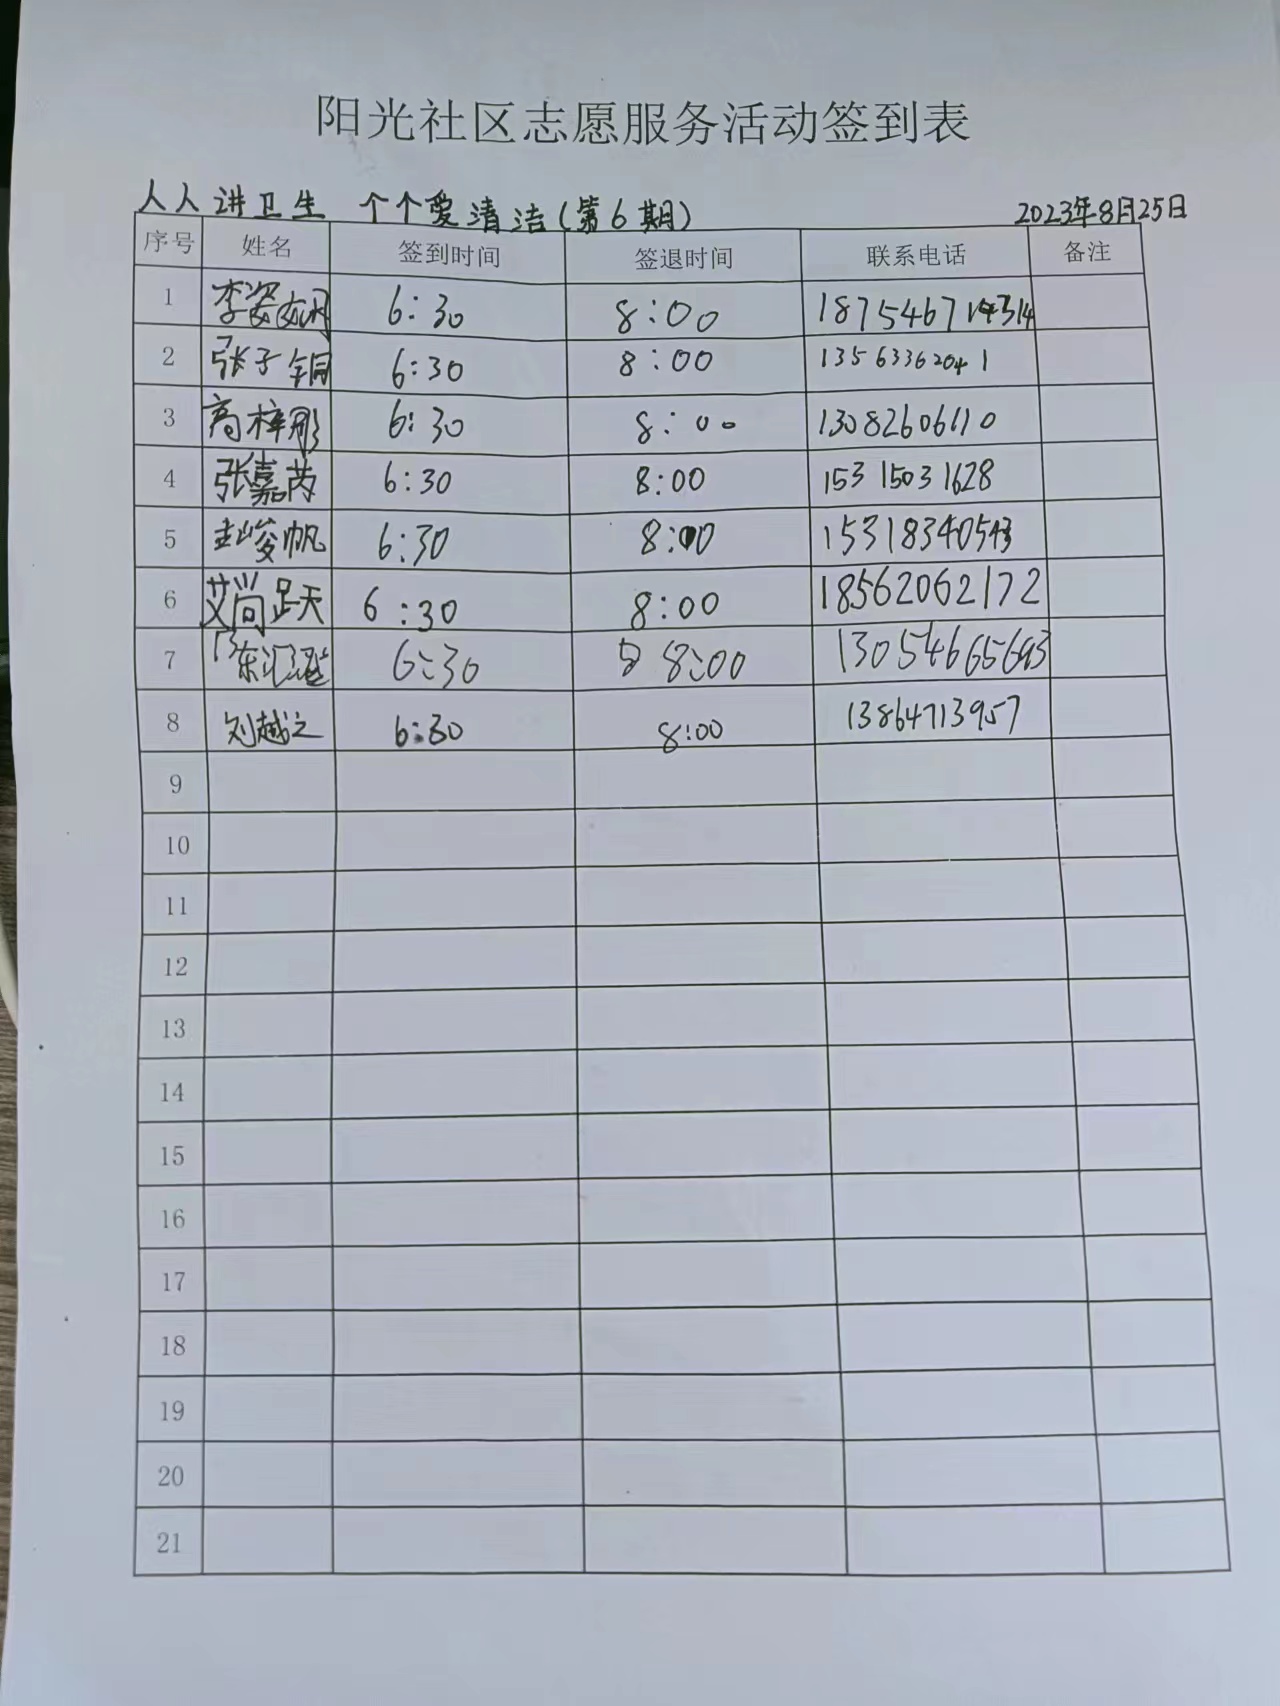 阳光社区志愿服务活动签到表
人人讲卫生 个个爱清洁(第6期) 2023年8月25日
序号 姓名 签到时间 签退时间 联系电话 备注
1 李姿 6:30 8:00
2 张子铜 6:30 8:00 13563362041
3 高梓彤 6:30 8:00 13082606110
4 张嘉芮 6:30 8:00 15315031628
5 赵峻帆 6:30 8:00
6 艾尚跃天 6:30 8:00 18562062172
7 6:30 8:00
8 刘越之 6:30 8:00 13864713957
9
10
11
12
13
14
15
16
17
18
19
20
21